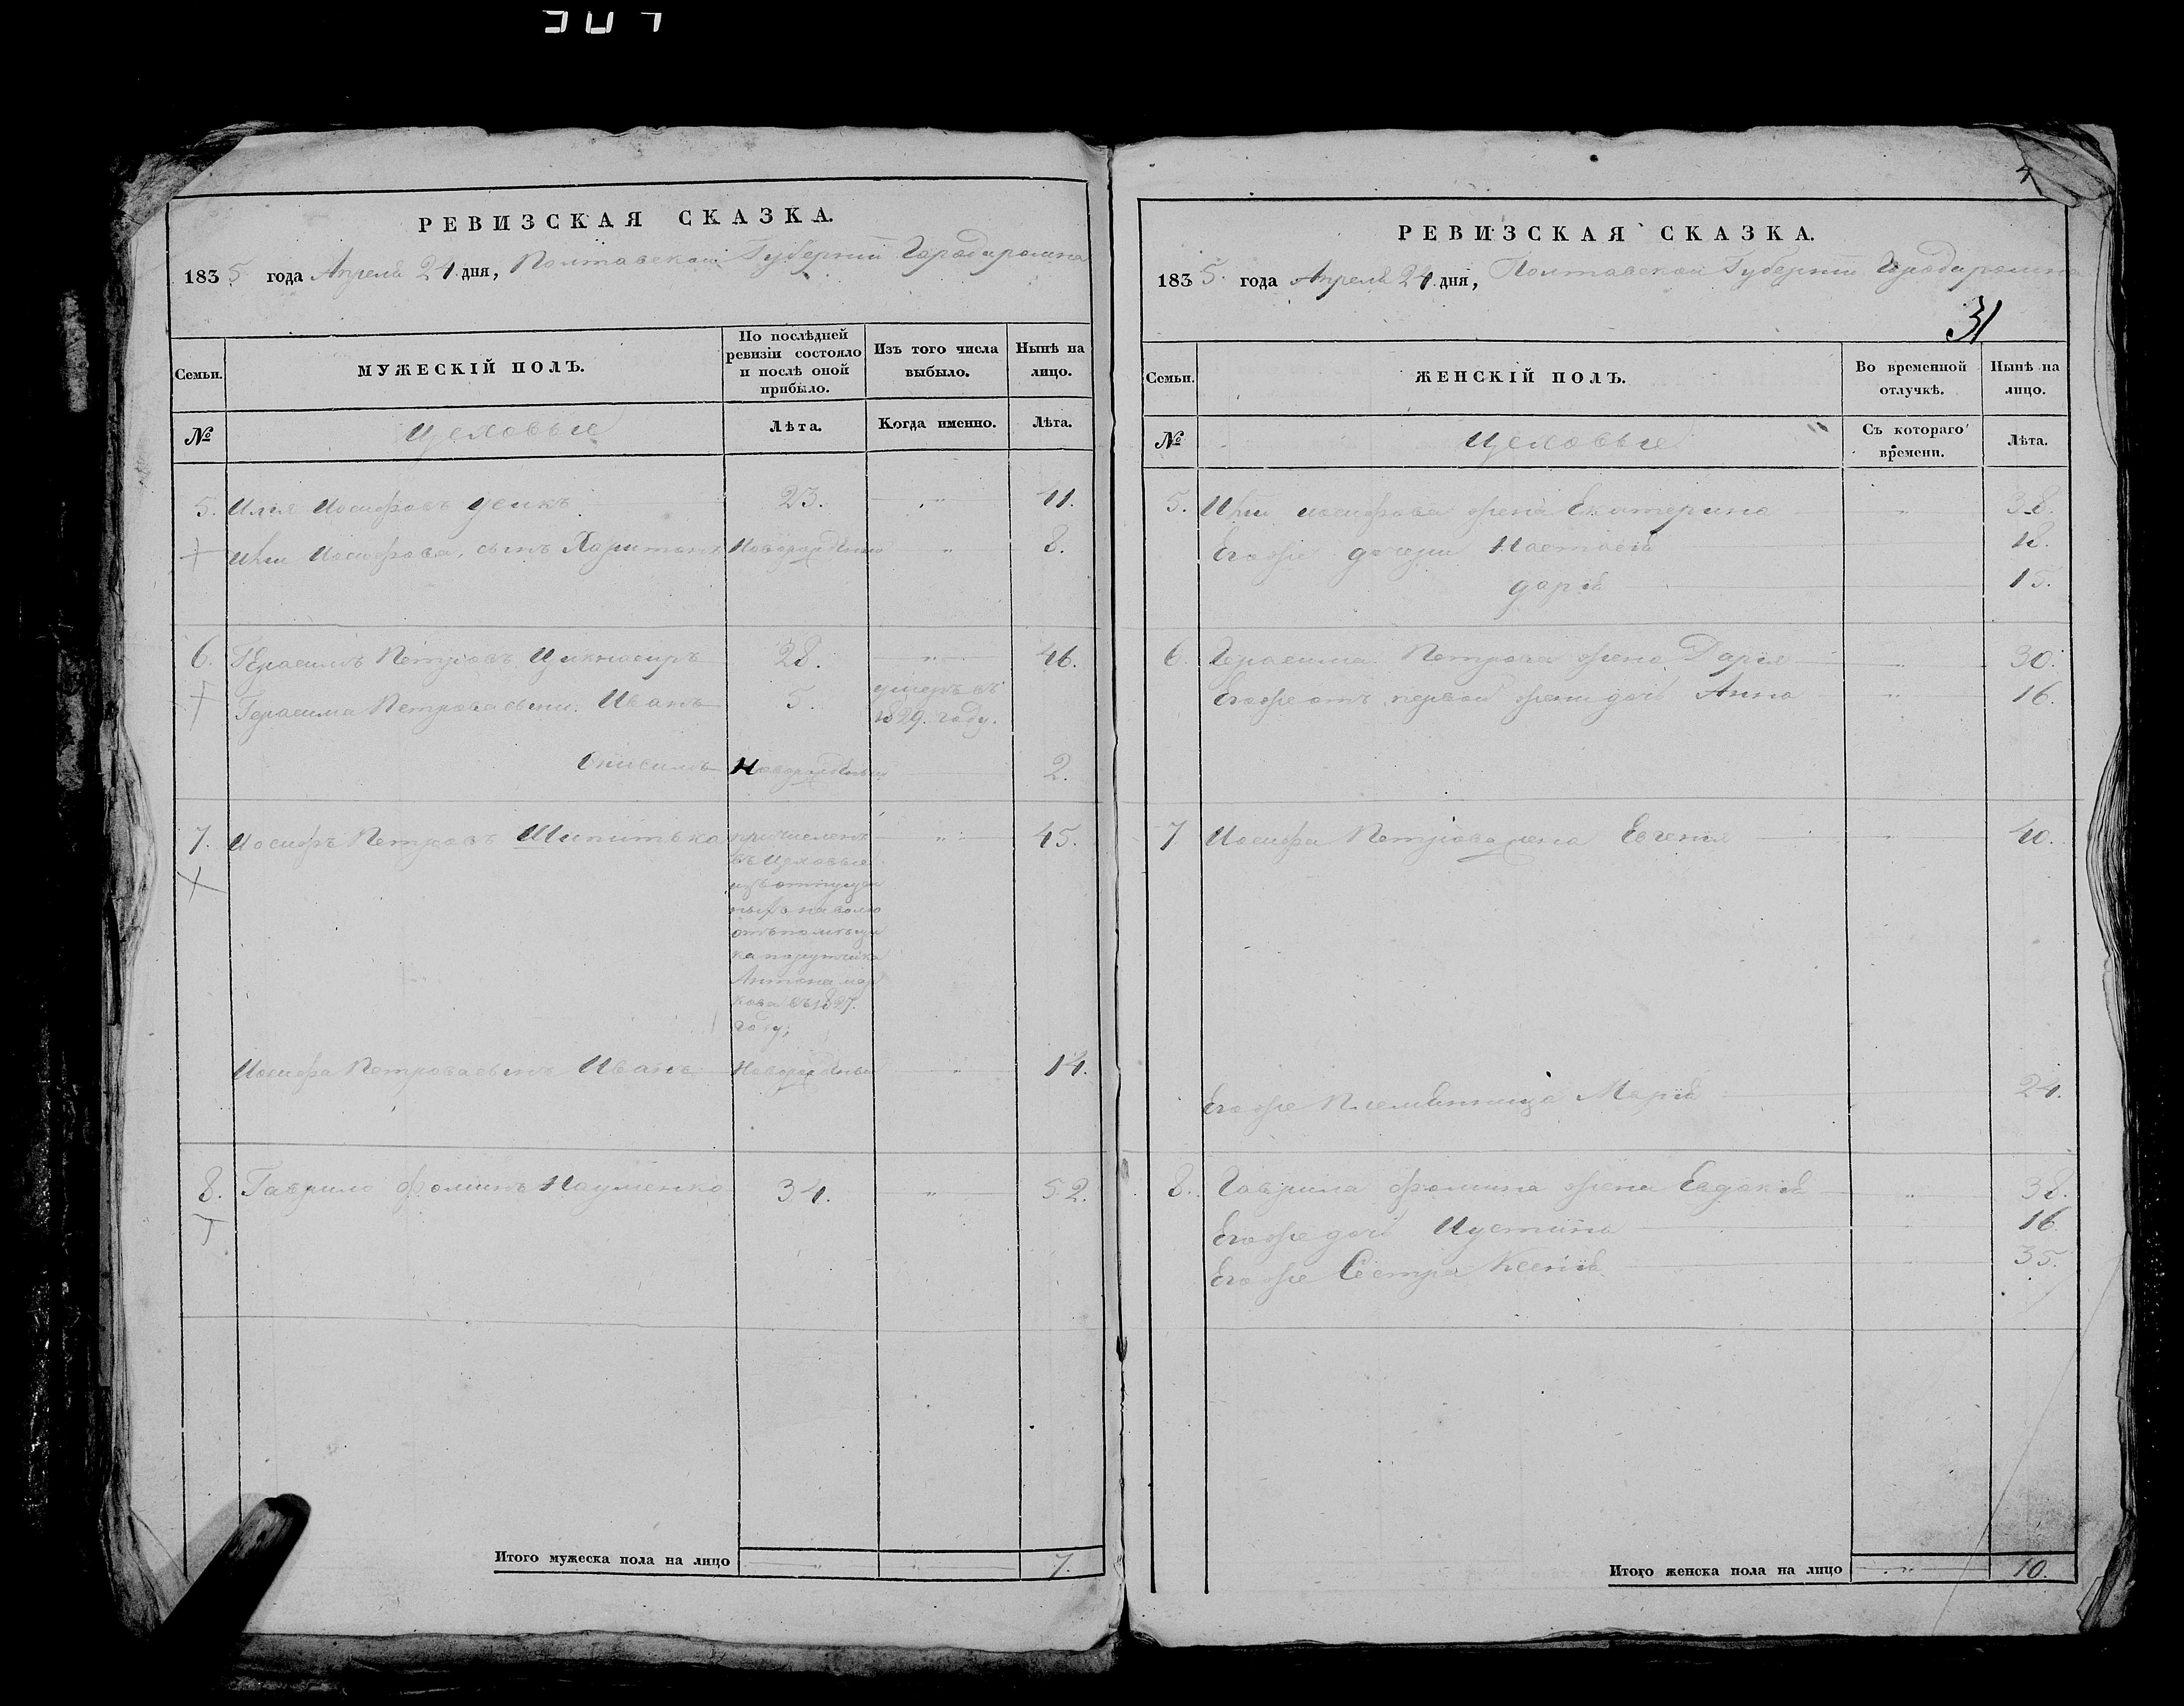 РЕВИЗСКАЯ СКАЗКА.
1835. года Апреля 24. дня, Полтавской Губернии Города ромна
Семьи.
МУЖЕСКІЙ ПОЛЪ.
По послѣдней
ревизіи состояло
и послѣ оной
прибыло.
Изъ того числа
выбыло.
Нынѣ на
лицо.
№
Цеховые
Лѣта.
Когда именно.
Лѣта.
5. Илия Иосифовъ 23. " 41.
Иліи Иосифова, сынъ Харитонъ Новорожденый " 8.
6. Герасимъ Петровъ 28. " 46.
Герасима Петрова сыни. Иванъ 5. умеръ въ
1829. году.
Онисимъ Новорожденый 2.
7. Иосифъ Петровъ Шипитька причисленъ " 45.
въ Цеховые
изъ отпущен
ныхъ на волю
отъ помѣщи
ка порутчика
Антона мар
кова въ 1827.
году;
Иосифа Петрова сынъ Иванъ Новорожденый " 14.
8. Гаврило фоминъ Науменко 34. " 52.
Итого мужеска пола на лицо " " 7.
РЕВИЗСКАЯ СКАЗКА.
1835. года Апреля 24. дня, Полтавской Губернии Города ромна
31
Семьи.
ЖЕНСКІЙ ПОЛЪ.
Во временной
отлучкѣ.
Нынѣ на
лицо.
№
Цеховые
Съ котораго
времени.
Лѣта.
5. Иліи иосифова жена Екатерина " 38.
Егоже дочери Настасія
дарія 15.
6. Герасима Петрова жена Дарія " 30.
Егоже отъ первой жени дочь Анна " 16.
7 Иосифа Петрова жена Евгенія " 40.
Егоже Племянница Марія 24.
8. Гаврила фомина жена Евдокія " 38.
Егоже дочь Иустина 16.
Егоже Сестра Ксенія 35.
Итого женска пола на лицо " 10.